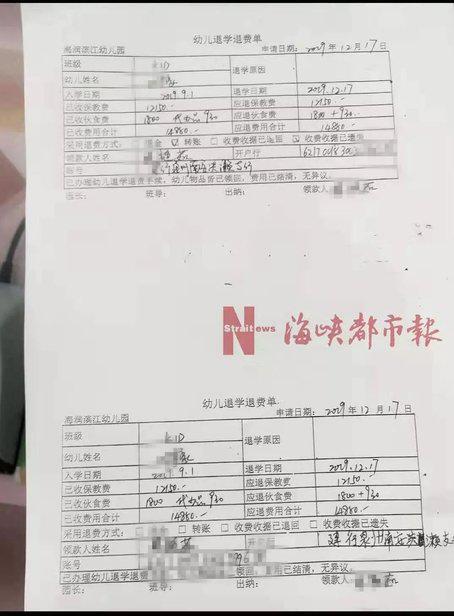 幼儿退学退费单
海润滨江幼儿园 申请日期: 2019年12月17日
班级 KID 退学原因
幼儿姓名
入学日期 2019.9.1 退学日期 2019.12.17
已收保教费 12150.- 应退保教费 12150.-
已收伙食费 1800 代办品930 应退伙食费 1800+930
已收费用合计 14880.- 应退费用合计 14880.-
采用退费方式: 现金 转账 收费收据已退回 收费收据已遗失
领款人姓名 开户行
账号
已办理幼儿退学退费手续, 幼儿物品皆已领回, 费用已结清, 无异议。
园长: 班导: 出纳: 领款人
N StraitNews 海峡都市报
幼儿退学退费单
海润滨江幼儿园 申请日期: 2019年12月17日
班级 KID 退学原因
幼儿姓名
入学日期 2019.9.1 退学日期 2019.12.17
已收保教费 12150.- 应退保教费 12150.-
已收伙食费 1800 代办品930 应退伙食费 1800+930
已收费用合计 14880.- 应退费用合计 14880.-
采用退费方式: 转账 收费收据已退回 收费收据已遗失
领款人姓名
账号
已办理幼儿退学退费 费用已结清, 无异议。
园长: 班导: 出纳: 领款人